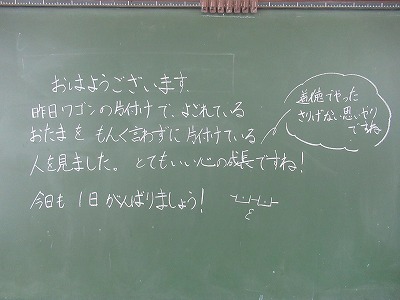 おはようございます.
昨日ワゴンの片付けで、よごれている
おたまを もんく言わずに片付けている
人を見ました。とてもいい心の成長ですね!
今日も 1日 がんばりましょう!
道徳でやった
さりげない思いやり
ですね